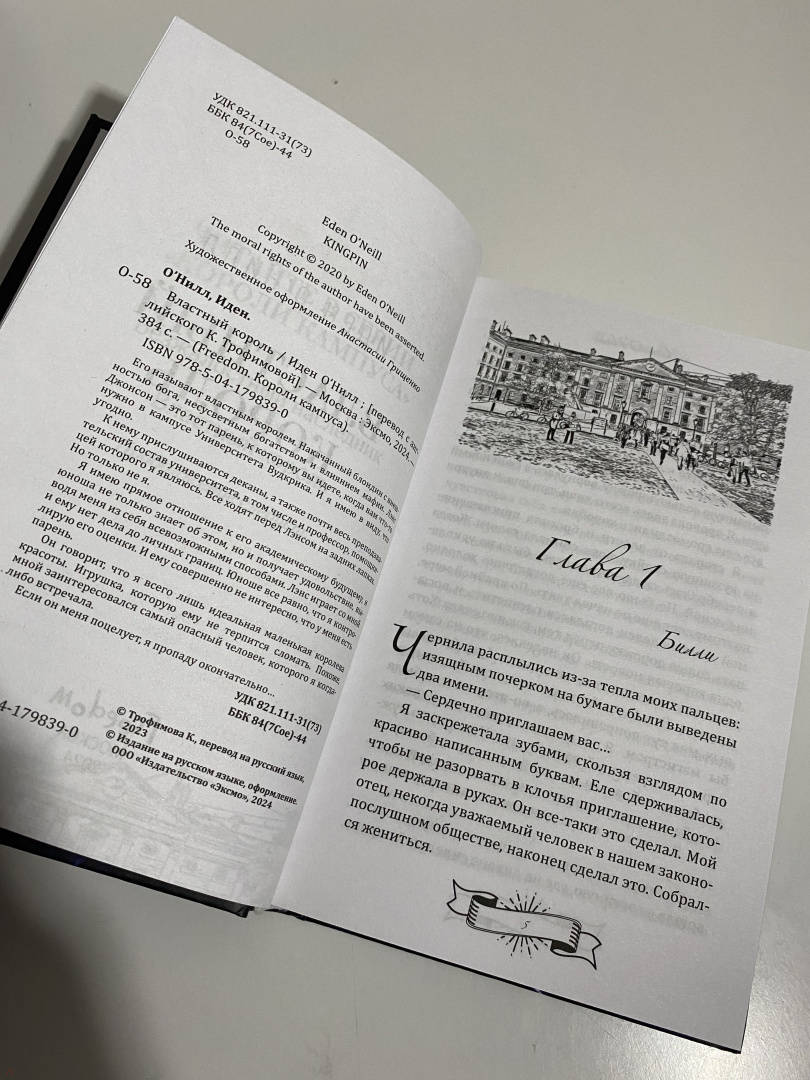 УДК 821.111-31(73)
ББК 84(7Сое)-44
О-58
Eden O’Neill
KINGPIN
Copyright © 2020 by Eden O’Neill
The moral rights of the author have been asserted.
Художественное оформление Анастасии Грищенко
О’Нилл, Иден.
О-58 Властный король / Иден О’Нилл ; [перевод с анг-
лийского К. Трофимовой]. — Москва : Эксмо, 2024. —
384 с. — (Freedom. Короли кампуса).
ISBN 978-5-04-179839-0
Его называют властным королем. Накачанный блондин с внеш-
ностью бога, несусветным богатством и влиянием мафии. Лэнс
Джонсон — это тот парень, к которому вы идете, когда вам что-то
нужно в кампусе Университета Вудкрика. И я имею в виду, что
угодно.
К нему прислушиваются деканы, а также почти весь преподава-
тельский состав университета, в том числе и профессор, помощни-
цей которого я являюсь. Все ходят перед Лэнсом на задних лапках.
Но только не я.
Я имею прямое отношение к его академическому будущему, и
юноша не только знает об этом, но и получает удовольствие, вы-
водя меня из себя всевозможными способами. Лэнс играет со мной,
и ему нет дела до личных границ. Юноше все равно, что я контро-
лирую его оценки. И ему совершенно не интересно, что у меня есть
парень.
Он говорит, что я всего лишь идеальная маленькая королева
красоты. Игрушка, которую ему не терпится сломать. Похоже,
мной заинтересовался самый опасный человек, которого я когда-
либо встречала.
Если он меня поцелует, я пропаду окончательно...
УДК 821.111-31(73)
ББК 84(7Сое)-44
© Трофимова К., перевод на русский язык,
2023
© Издание на русском языке, оформление.
4-179839-0 ООО «Издательство «Эксмо», 2024
Глава 1
Билли
Чернила расплылись из-за тепла моих пальцев:
изящным почерком на бумаге были выведены
два имени.
— Сердечно приглашаем вас...
Я заскрежетала зубами, скользя взглядом по
красиво написанным буквам. Еле сдерживалась,
чтобы не разорвать в клочья приглашение, кото-
рое держала в руках. Он все-таки это сделал. Мой
отец, некогда уважаемый человек в нашем законо-
послушном обществе, наконец сделал это. Собрал-
ся жениться.
5